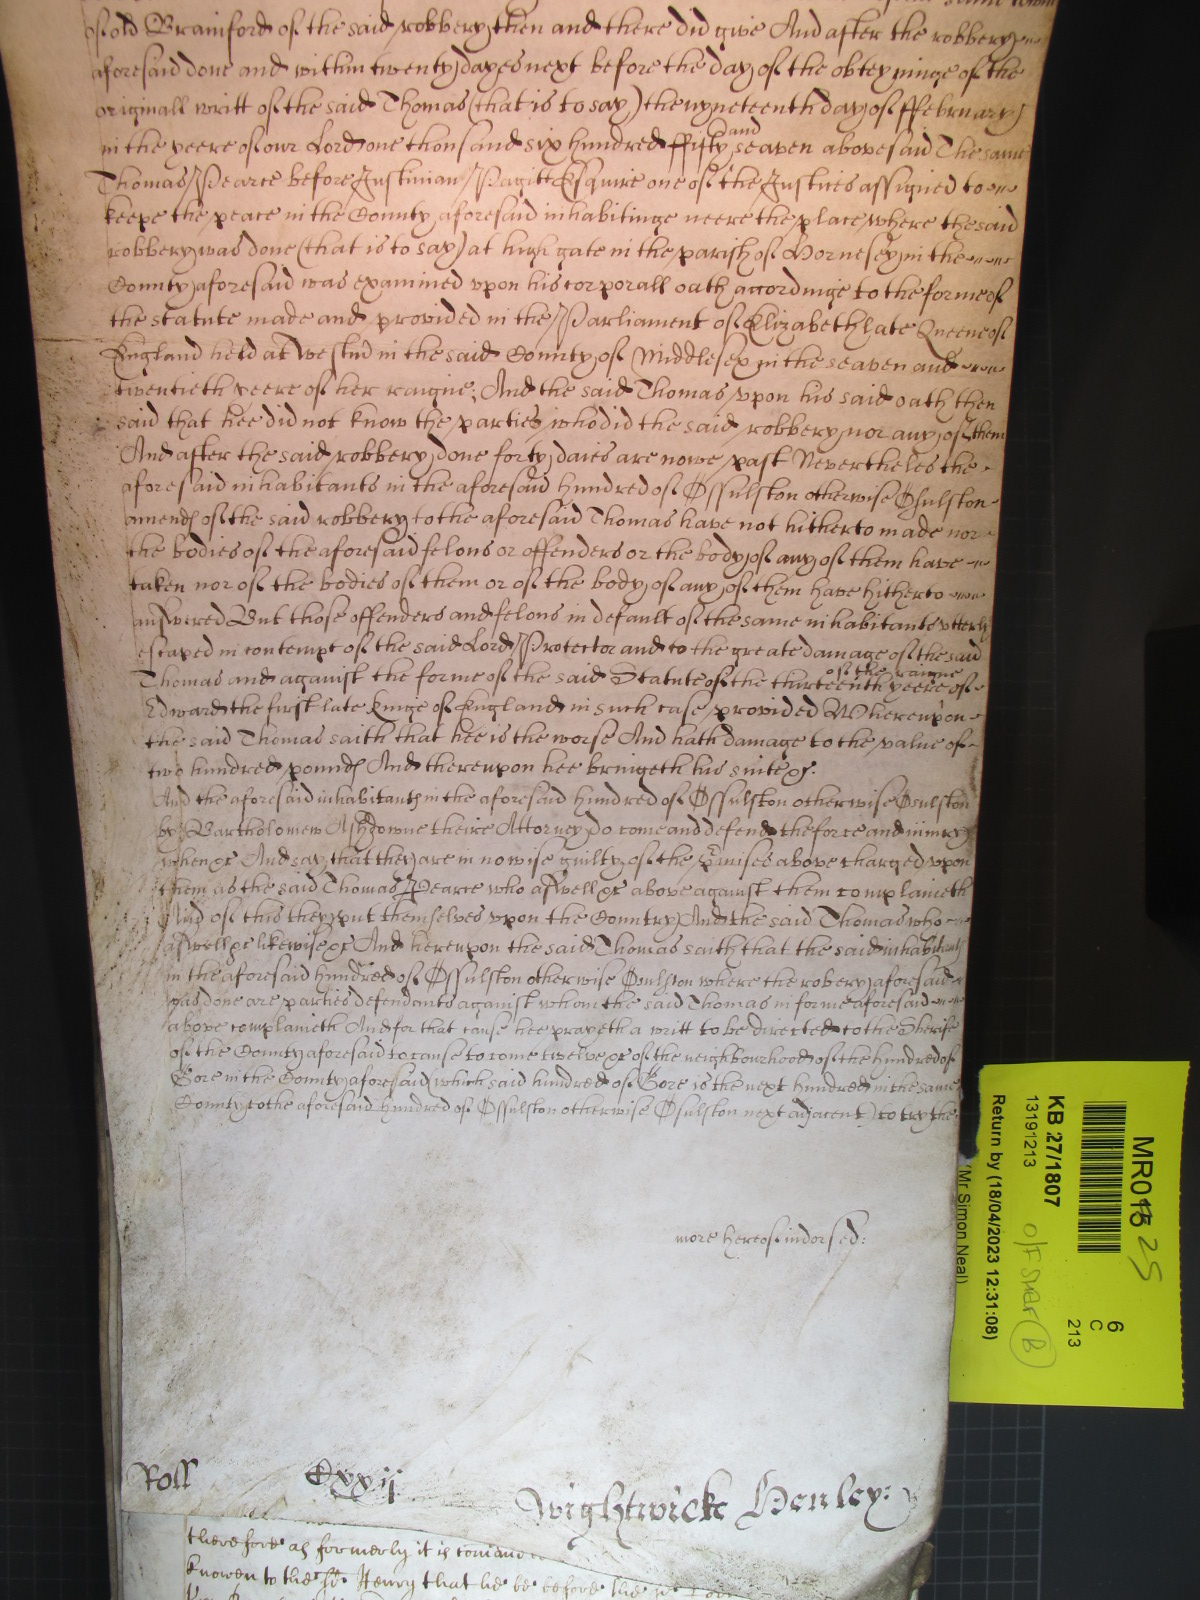 of old Brainford of the said robbery then and there did give And after the robbery
aforesaid done and within twenty dayes next before the day of the obteyninge of the
originall writt of the said Thomas (that is to say) the nyneteenth day of ffebruary
in the yeere of our Lord one thousand six hundred ffifty and seaven abovesaid The same
Thomas Pearce before Justinian Pagitt Esquire one of the Justices assigned to
keepe the peace in the County aforesaid inhabitinge neere the place where the said
robbery was done (that is to say) at highgate in the parish of Hornesey in the
County aforesaid was examined upon his corporall oath accordinge to the forme of
the statute made and provided in the Parliament of Elizabeth late Queene of
England held at Westm in the said County of Middlesex in the seaven and
twentieth yeere of her raigne; And the said Thomas upon his said oath then
said that hee did not know the parties who did the said robbery nor any of them
And after the said robbery done forty daies are nowe past Nevertheles the
aforesaid inhabitants in the aforesaid hundred of Ossulston otherwise Osulston
amends of the said robbery to the aforesaid Thomas have not hitherto made nor
the bodies of the aforesaid felons or offenders or the body of any of them have
taken nor of the bodies of them or of the body of any of them have hitherto
answered But those offenders and felons in default of the same inhabitants utterly
escaped in contempt of the said Lord Protector and to the greate damage of the said
Thomas and against the forme of the said Statute of the thirteenth yeere of the raigne of
Edward the first late Kinge of England in such case provided Whereupon
the said Thomas saith that hee is the worse And hath damage to the value of
two hundred pounds And thereupon hee bringeth his suite &c.
And the aforesaid inhabitants in the aforesaid hundred of Ossulston otherwise Osulston
by Bartholomew Ashdowne theire Attorney do come and defend the force and iniury
when &c And say that they are in nowise guilty of the p'mises above charged upon
them as the said Thomas Pearce who aswell &c above against them complaineth
And of this they put themselves upon the Country And the said Thomas who
aswell &c likewise &c And hereupon the said Thomas saith that the said inhabitants
in the aforesaid hundred of Ossulston otherwise Osulston where the robery aforesaid
was done are parties defendants against whom the said Thomas in forme aforesaid
above complaineth And for that cause hee prayeth a writt to be directed to the Sherife
of the County aforesaid to cause to come twelve &c of the neighbourhood of the hundred of
Gore in the County aforesaid (which said hundred of Gore is the next hundred in the same
County to the aforesaid hundred of Ossulston otherwise Osulston next adjacent) to try the
more hereof indorsed:
Roll Cxxij Wightwicke Henley:
therefore as formerly it is comand
knowen to the sd. Henry that he be before the
MR015 25
6
C
213
KB 27/1807
13191213
O/F SMAF B
Return by (18/04/2023 12:31:08)
(Mr Simon Neal)